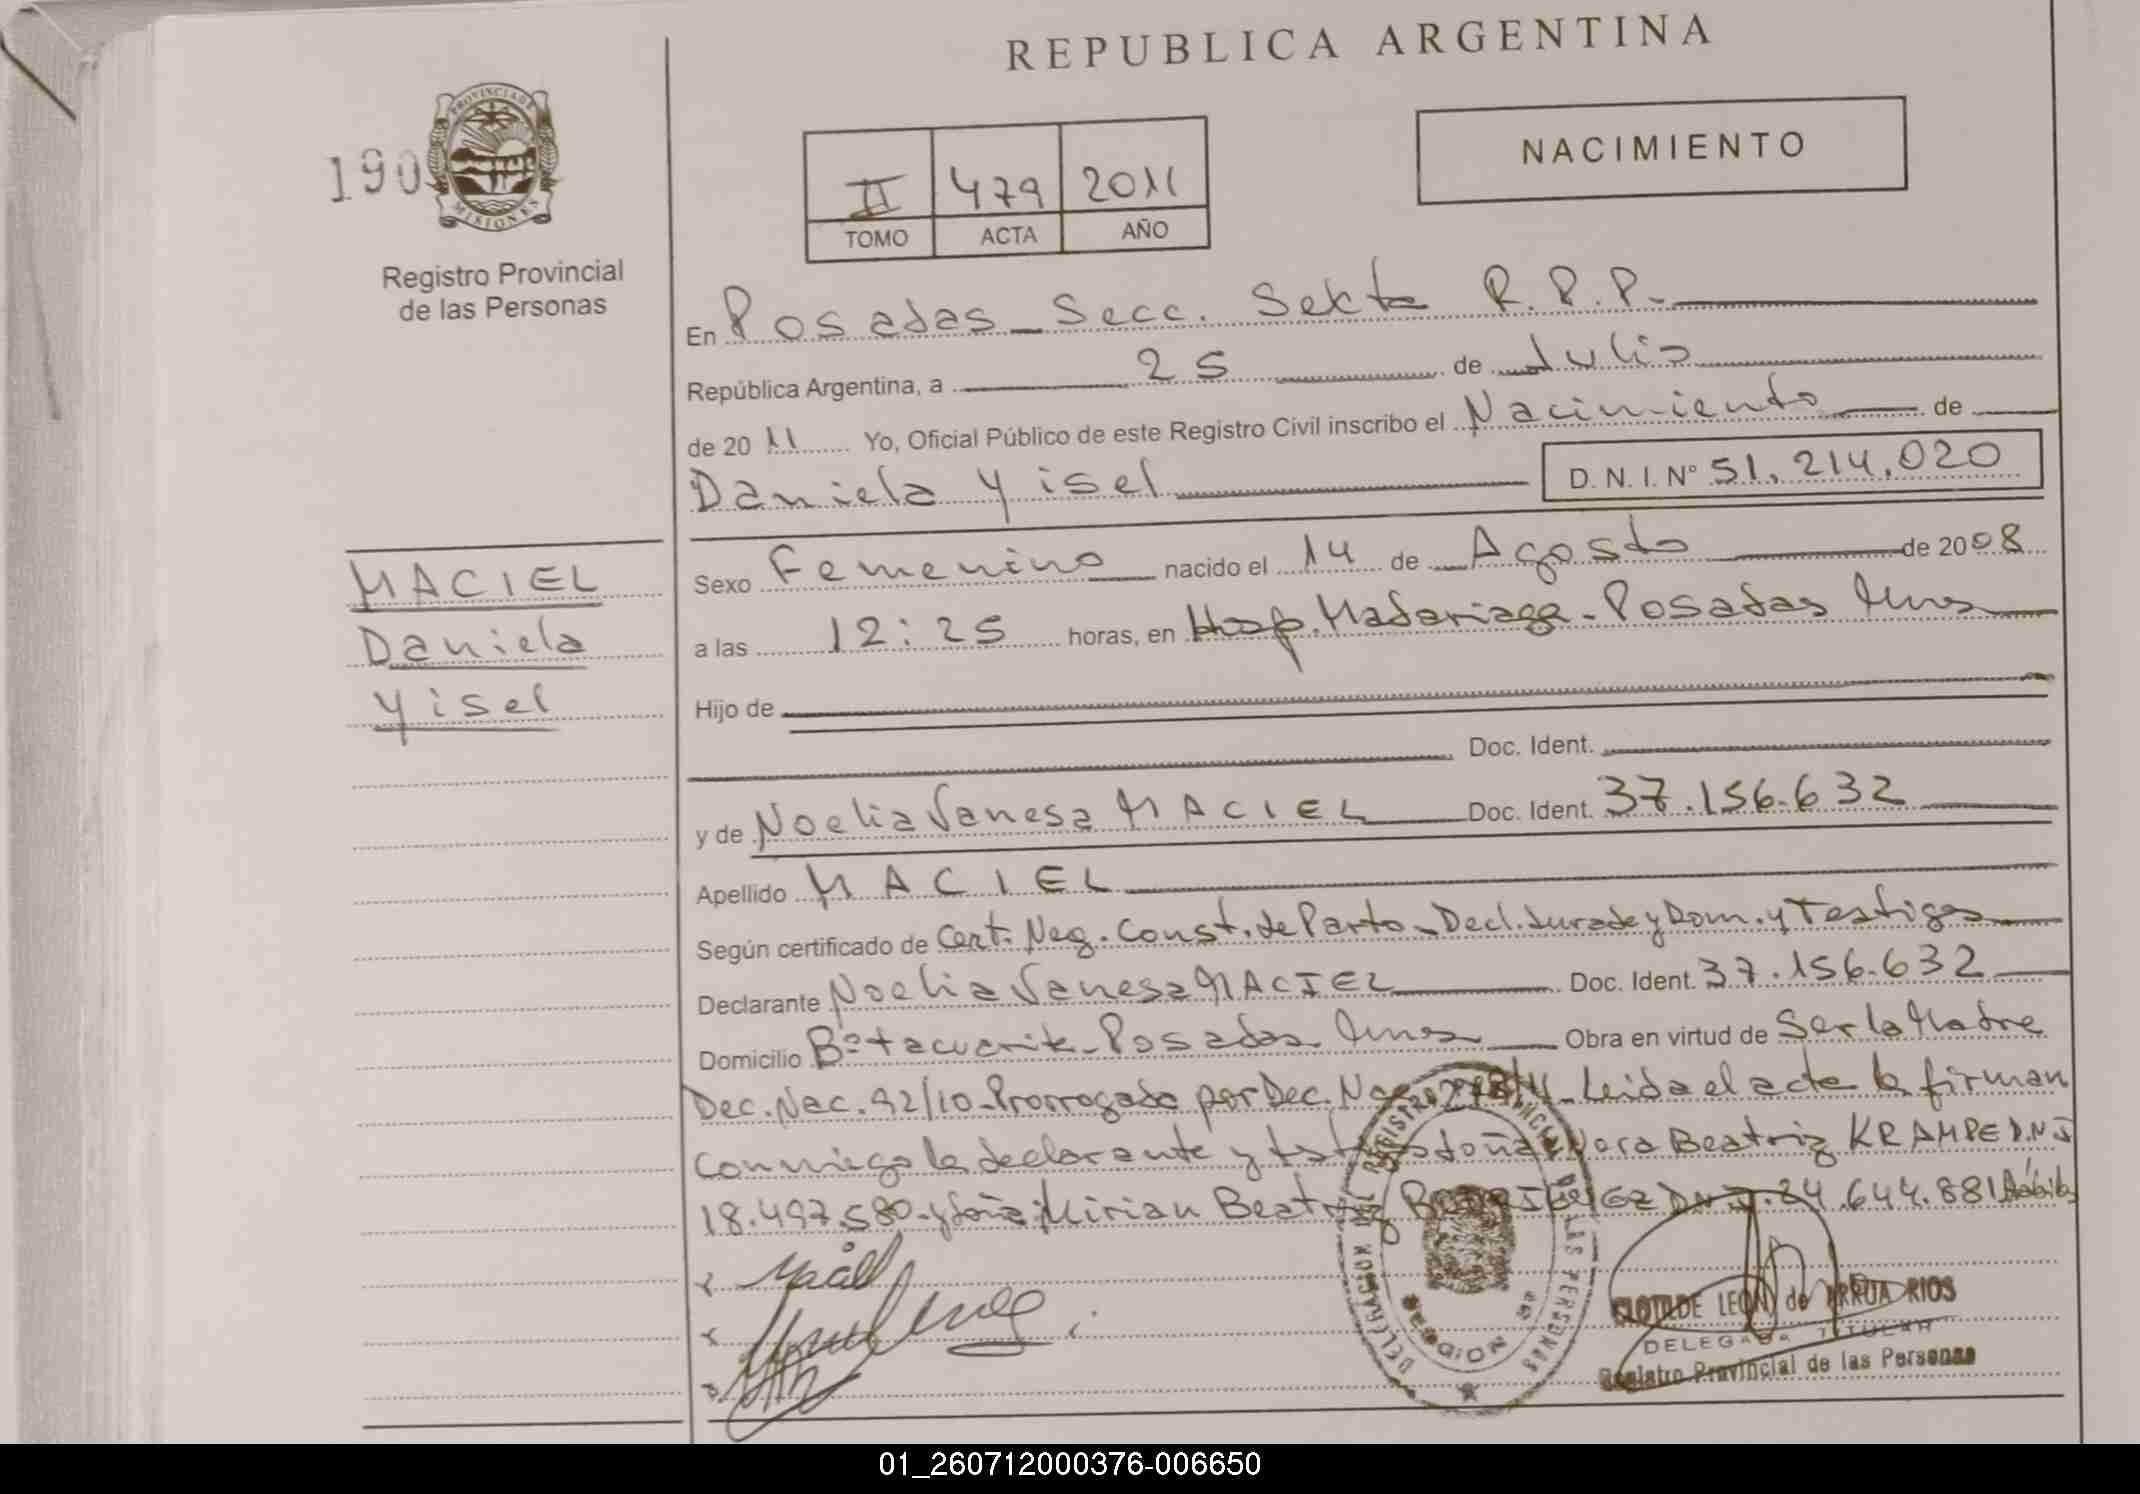 REPUBLICA ARGENTINA
190
PROVINCIA DE
MISIONES
Registro Provincial
de las Personas
II 479 2011
TOMO ACTA AÑO
NACIMIENTO
En Posadas - Secc. Sexta R.P.P.-
República Argentina, a 25 de Julio
de 2011 Yo, Oficial Público de este Registro Civil inscribo el Nacimiento de
Daniela Yisel D. N. I. Nº 51.214.020
MACIEL
Daniela
Yisel
Sexo Femenino nacido el 14 de Agosto de 2008
a las 12:25 horas, en Hosp. Madariaga - Posadas Mnes
Hijo de
Doc. Ident.
y de Noelia Vanesa MACIEL Doc. Ident. 37.156.632
Apellido MACIEL
Según certificado de Cert. Neg. Const. de Parto - Decl. Jurada y Dom. y Testigos
Declarante Noelia Vanesa MACIEL Doc. Ident. 37.156.632
Domicilio Bº Posadas Mnes Obra en virtud de Ser la Madre
Dec. Nac. 92/10 - Prorrogado por Dec. Nac. - Leida el acta la firman
conmigo la declarante y doña Beatriz KRAMPE D.N.I
18.497.580 - y doña Mirian Beatriz D.N.I. 24.644.881 Hábiles
DELEGACION DEL REGISTRO PROVINCIAL DE LAS PERSONAS
CLOTILDE LEON de ARRUA RIOS
DELEGADA TITULAR
Registro Provincial de las Personas
01_260712000376-006650